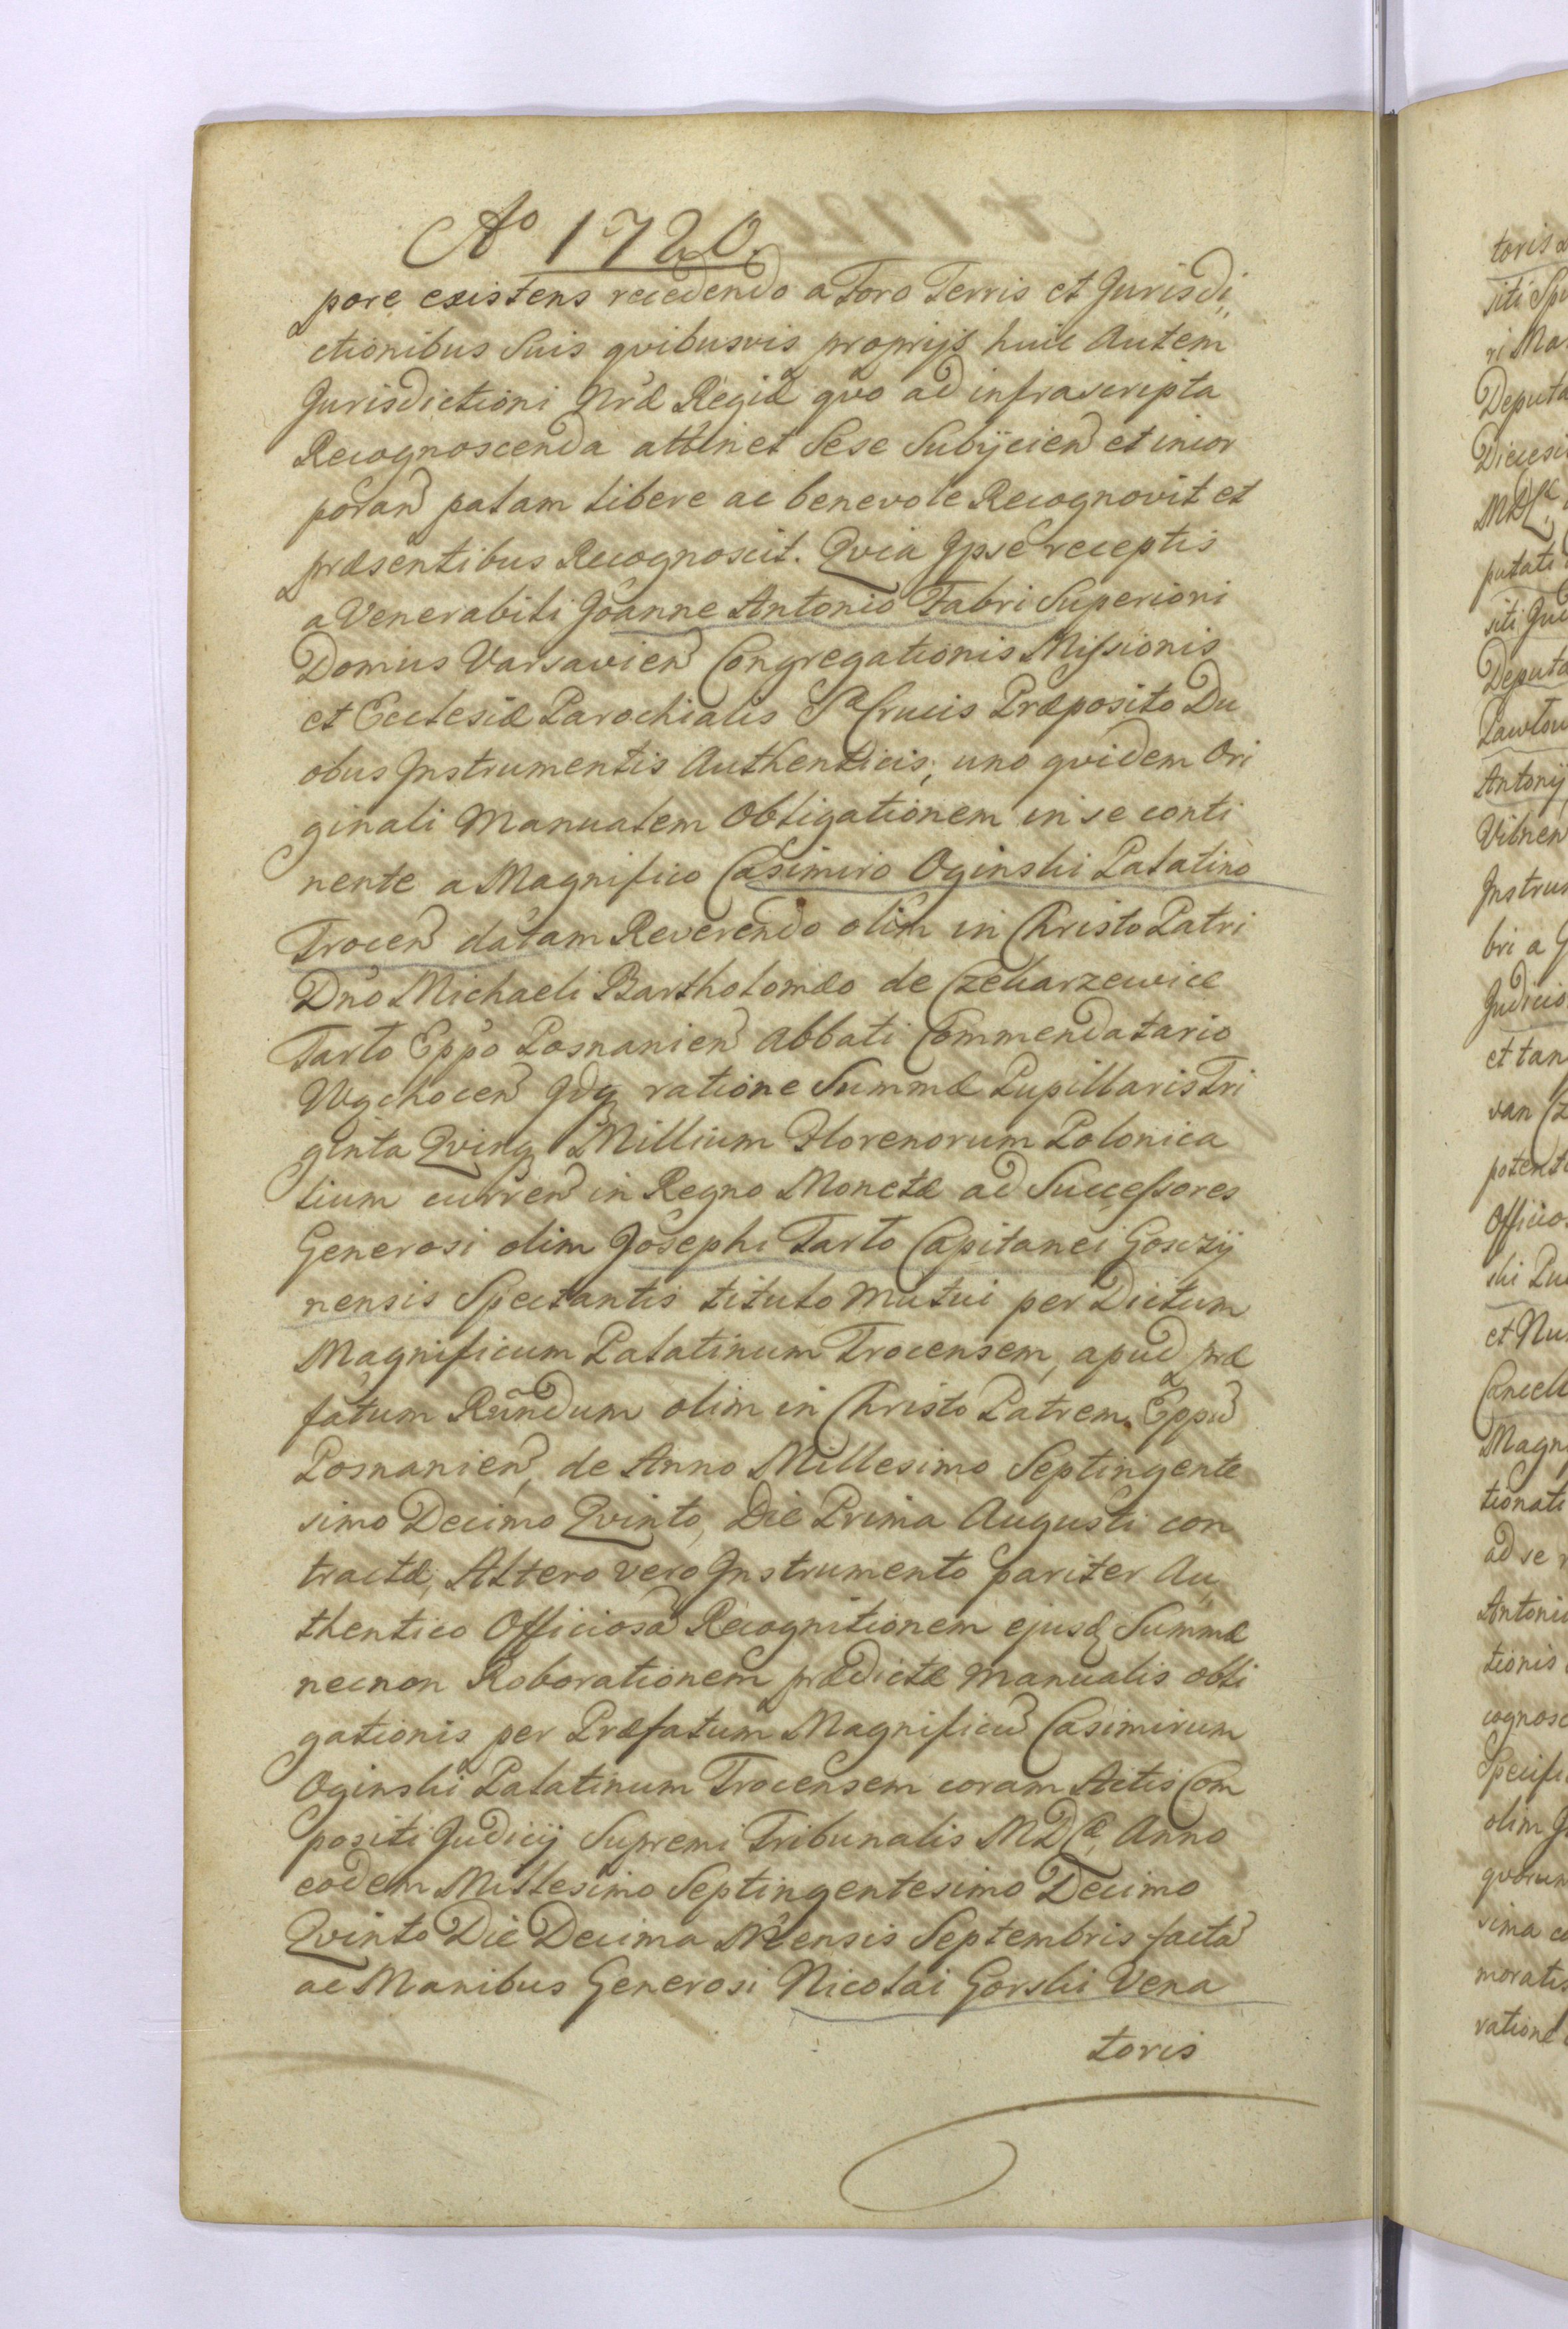 Aº 1720.
pore existens recedendo a Foro Terris et Jurisdi„
ctionibus Suis qvibusvis proprijs huic Autem
Jurisdictioni Nr̃æ Regiæ qvo ad infrascripta
Recognoscenda attinet Sese Subijcien̄ et incor
poran̄ palam libere ac benevole Recognovit et
præsentibus Recognoscit. Qvia Ipse receptis
a Venerabili Joanne Antonio Fabri Superiori
Domus Varsavien̄ Congregationis Missionis
et Ecclesiæ Parochialis Sæ Crucis Præposito Du
obus Instrumentis Authenticis, uno qvidem Ori
ginali Manualem Obligationem in se conti
nente a Magnifico Casimiro Oginski Palatino
Trocen̄ datam Reverendo olim in Christo Patri
Dño Michaeli Bartholomæo de Czekarzewice
Tarło Eppo Posnanien̄ Abbati Commendatario
Wąchocen̄ Idq ratione Summæ Pupillaris Tri
ginta Qvinq Millium Florenorum Polonica
lium curren̄ in Regno Monetæ ad Successores
Generosi olim Josephi Tarło Capitanei Goszij
nensis Spectantis titulo Mutui per Dictum
Magnificum Palatinum Trocensem, apud præ
fatum Rñdum olim in Christo Patrem Eppū
Posnanien̄, de Anno Millesimo Septingente
simo Decimo Qvinto, Die Prima Augusti con
tractæ, Altero vero Instrumento pariter Au„
thentico Officiosā Recognitionem ejusd Summæ
necnon Roborationem prædictæ Manualis obli
gationis per Præfatum Magnificū Casimirum
Oginski Palatinum Trocensem coram Actis Com
positi Judicij Supremi Tribunalis MDCæ, Anno
eodem Millesimo Septingentesimo Decimo
Qvinto Die Decima Mensis Septembris factā
ac Manibus Generosi Nicolai Gorski Vena
toris